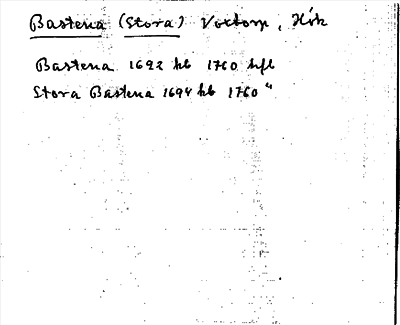 Bastena (Stora) Voctorp, Hök
Bastena 1692 kb 1760 hfl
Stora Bastena 1694 kb 1760 "